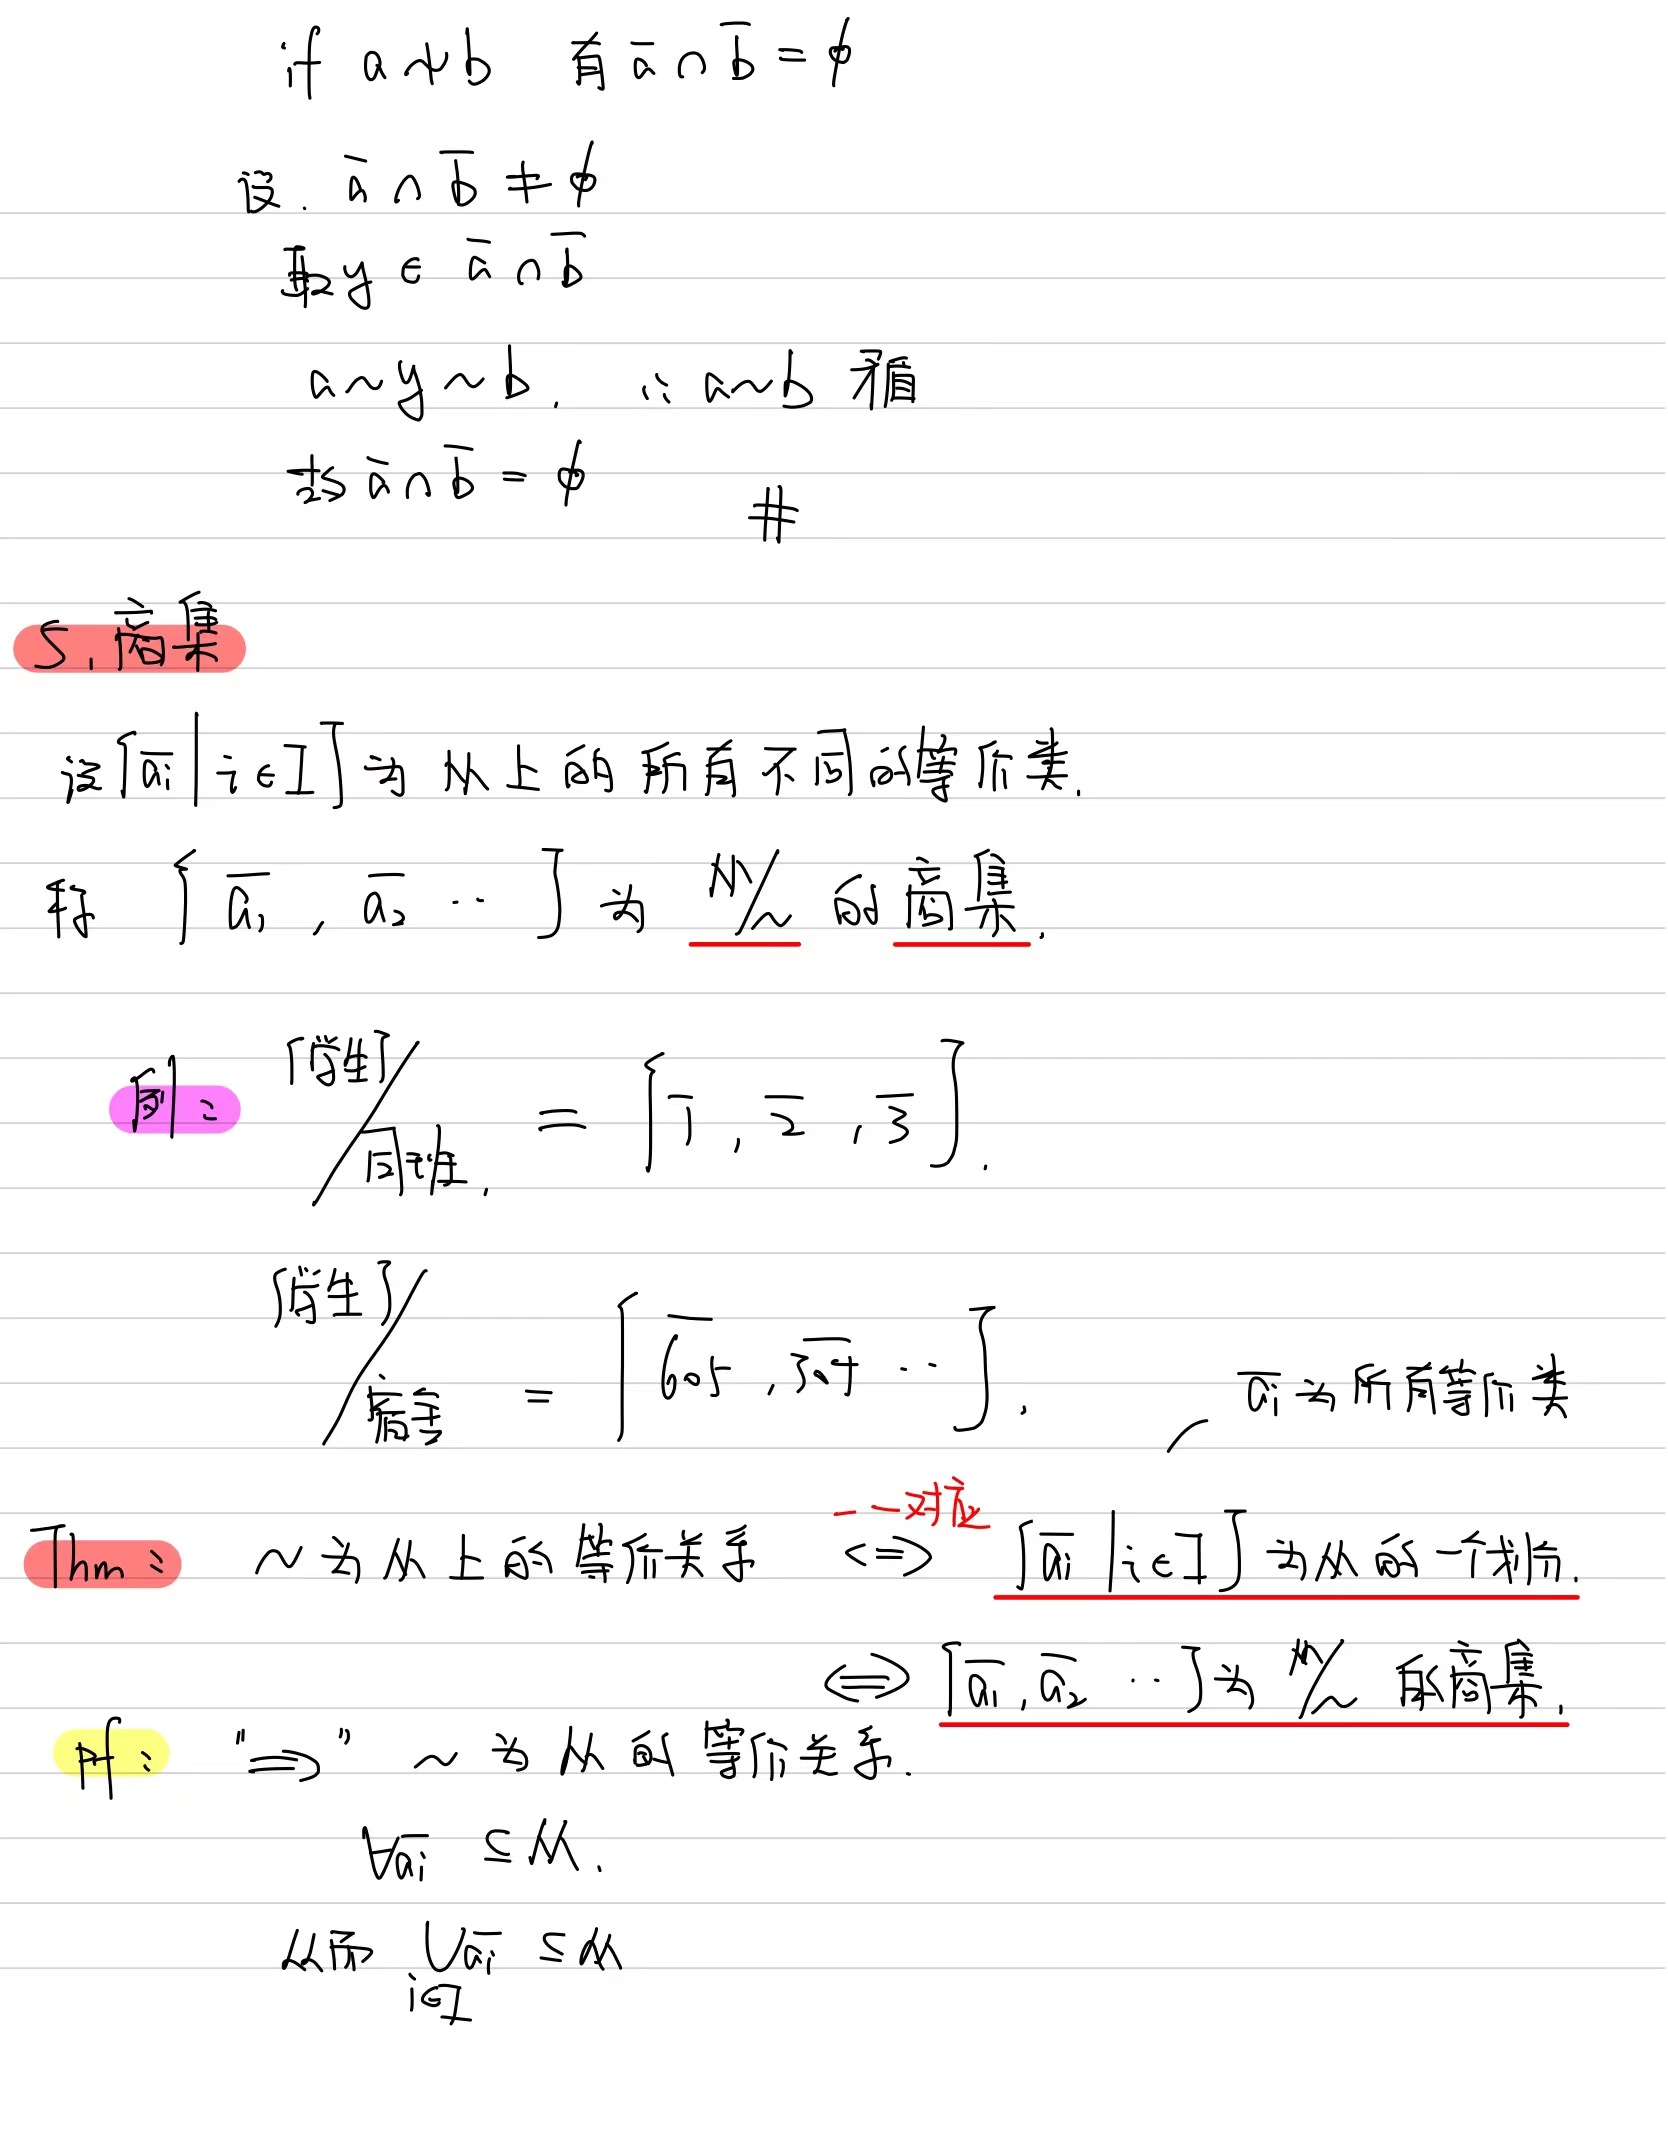 if a≁b 有 ā∩b̄=ϕ
设. ā∩b̄≠ϕ
取y∈ā∩b̄
a~y~b. ∴a~b 矛盾
故ā∩b̄=ϕ #
5.商集
设{a̅ᵢ|i∈I}为M上的所有不同的等价类.
称 {a̅₁, a̅₂ ‥}为 M/~ 的商集.
例: {学生}/同班. = {1̅, 2̅, 3̅}.
{学生}/宿舍 = {6̅0̅5̅, 3̅0̅4̅ ‥}.
a̅ᵢ为所有等价类
一一对应
Thm: ~为M上的等价关系 <=> {a̅ᵢ|i∈I}为M的一个划分.
<=> {a̅₁, a̅₂ ‥}为 M/~ 的商集.
pf: "=>" ~为M的等价关系.
∀a̅ᵢ ⊆M.
从而 ∪a̅ᵢ ⊆M
i∈I